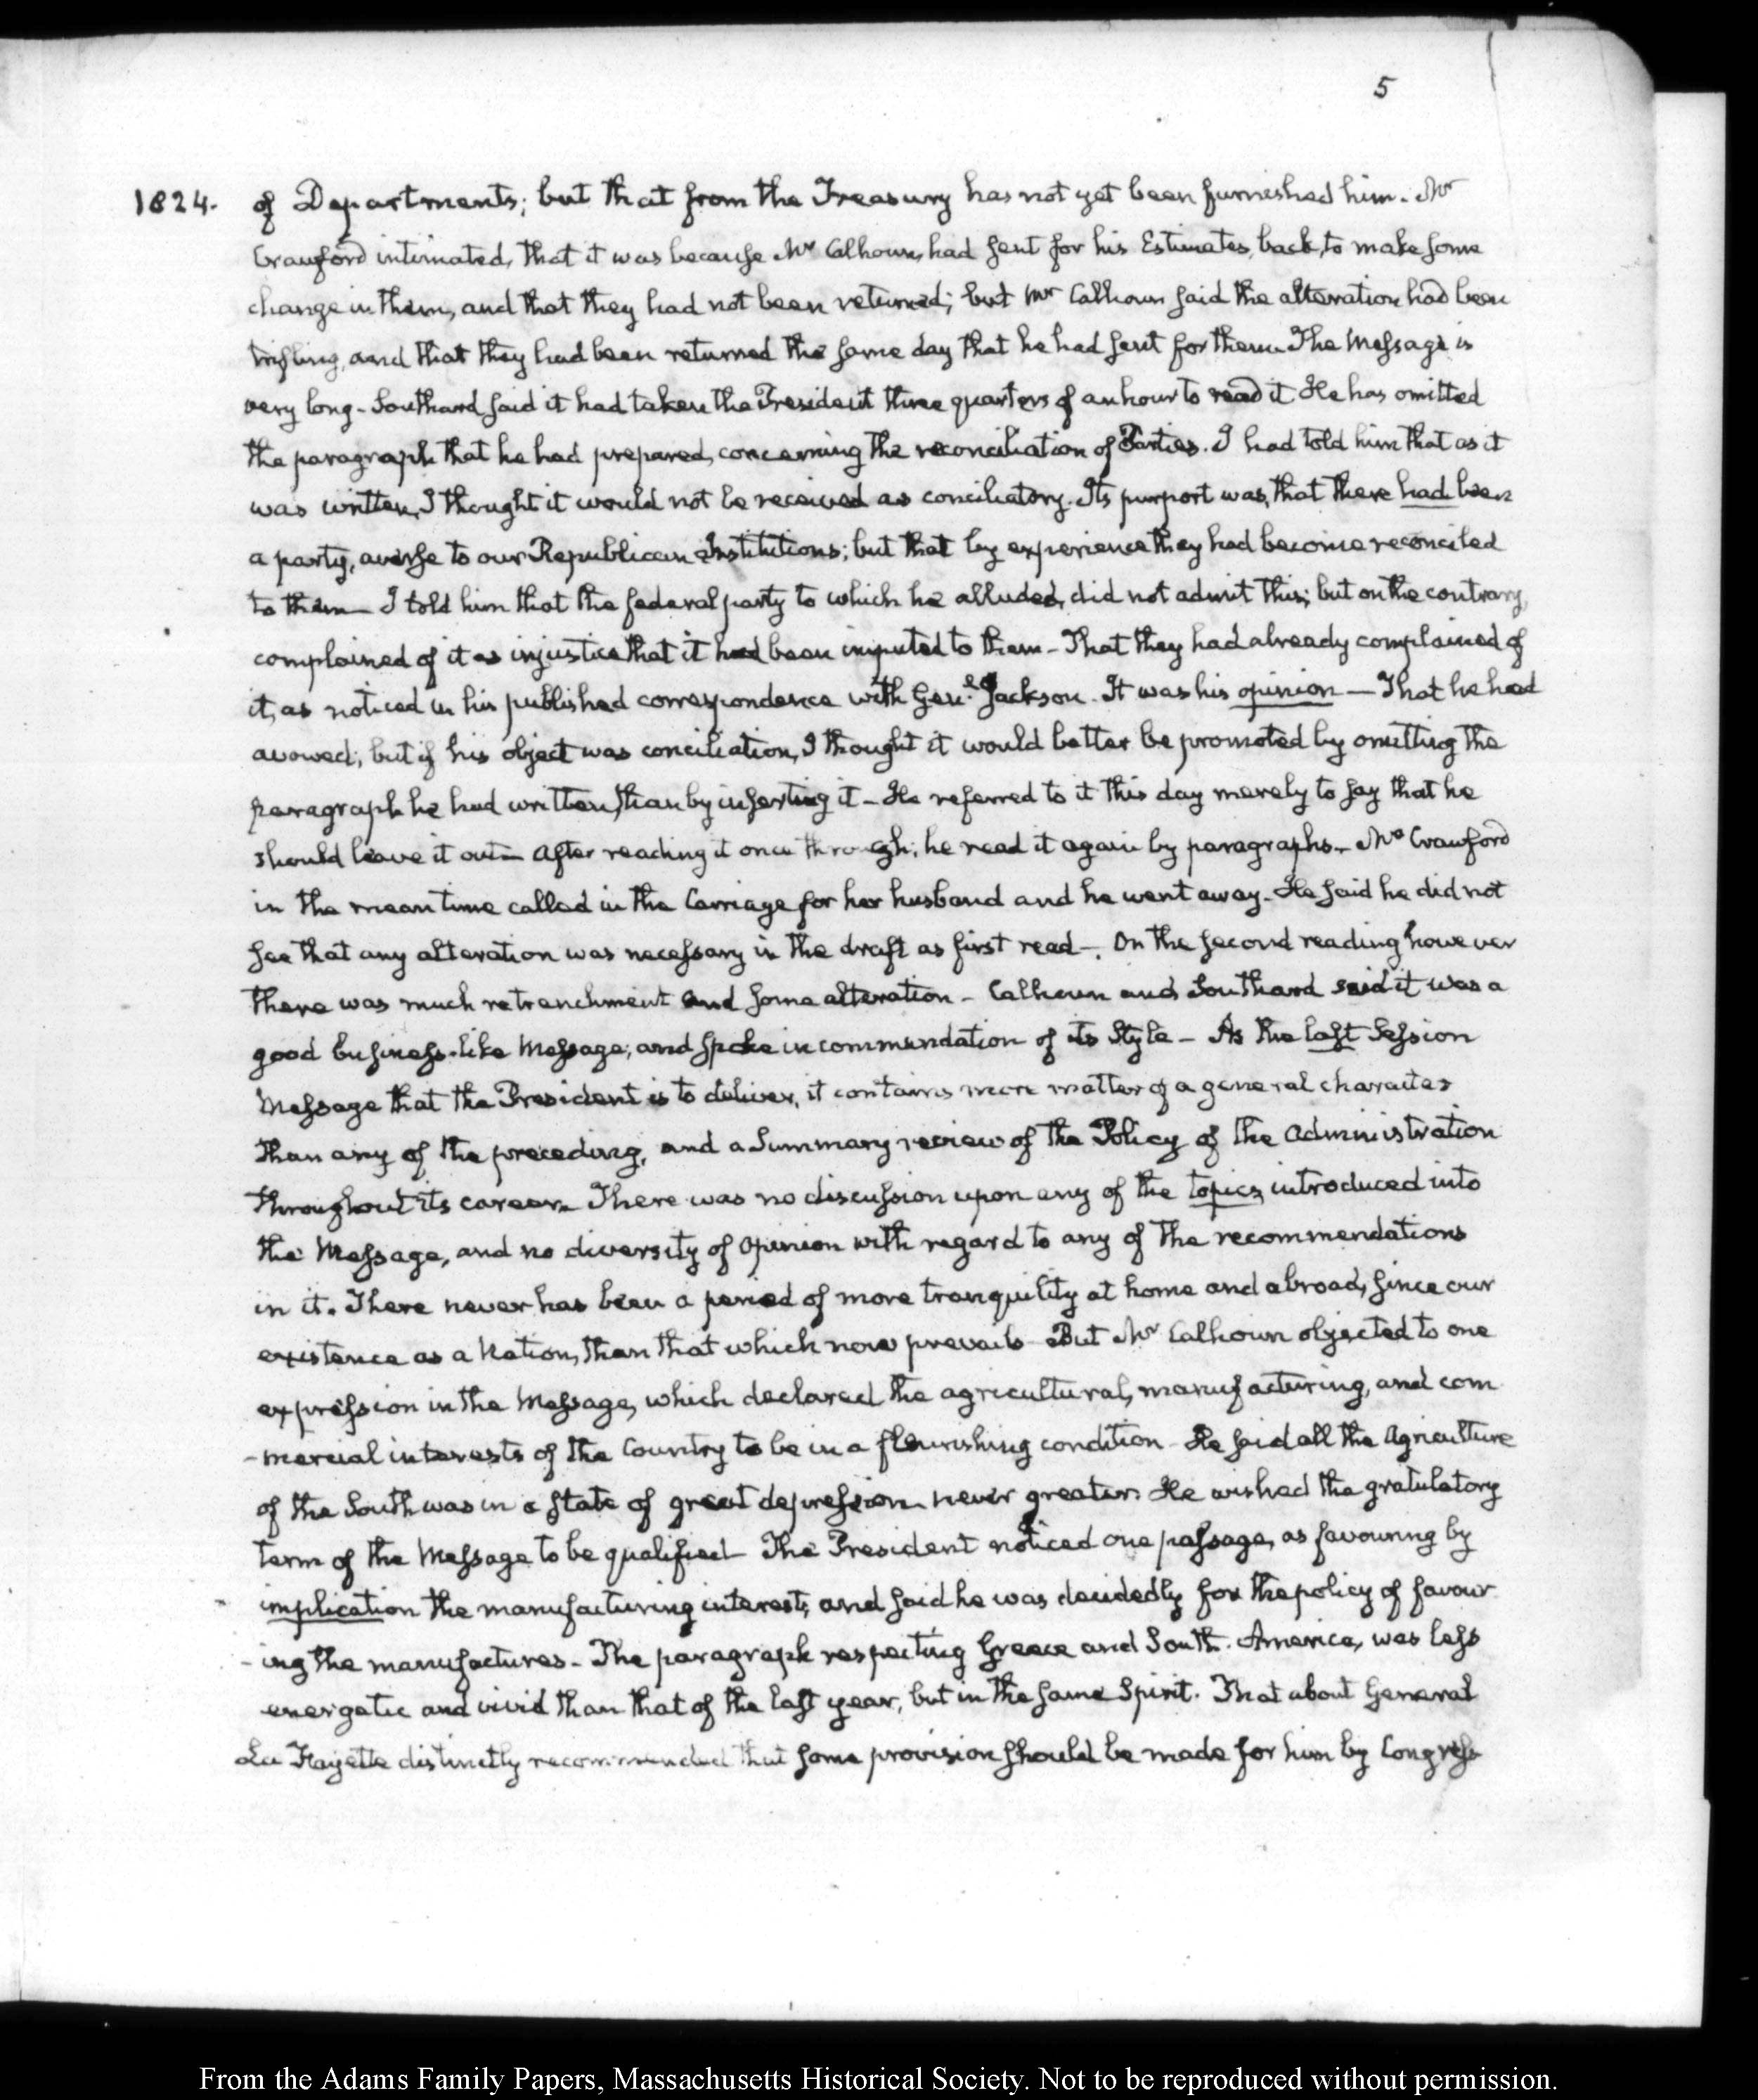 5
1824. of Departments; but that from the Treasury has not yet been furnished him. Mr
Crawford intimated, that it was because Mr Calhoun, had sent for his Estimates, back, to make some
change in them, and that they had not been returned; but Mr Calhoun said the alteration had been
trifling, and that they had been returned the same day that he had sent for them. The Message is
very long - Southard said it had taken the President three quarters of an hour to read it He has omitted
the paragraph that he had prepared, concerning the reconciliation of Parties. I had told him that as it
was written, I thought it would not be received as conciliatory. Its purport was, that there had been
a party, averse to our Republican Institutions; but that by experience they had become reconciled
to them - I told him that the federal party to which he alluded, did not admit this; but on the contrary,
complained of it as injustice that it had been imputed to them - That they had already complained of
it, as noticed in his published correspondence with Genl. Jackson. It was his opinion — That he had
avowed; but if his object was conciliation, I thought it would better be promoted by omitting the
paragraph he had written, than by inserting it - He referred to it this day merely to say that he
should leave it out - After reading it once through, he read it again by paragraphs - Mrs Crawford
in the mean time called in the Carriage for her husband and he went away - He said he did not
see that any alteration was necessary in the draft as first read -. On the second reading however
there was much retrenchment and some alteration - Calhoun and Southard said it was a
good business-like Message; and spoke in commendation of its Style - As the last Session
Message that the President is to deliver, it contains more matter of a general character
than any of the preceding, and a Summary review of the Policy of the Administration
throughout its career. There was no discussion upon any of the topics introduced into
the Message, and no diversity of opinion with regard to any of the recommendations
in it. There never has been a period of more tranquility at home and abroad, since our
existence as a Nation, than that which now prevails - But Mr Calhoun objected to one
expression in the Message, which declared the agricultural, manufacturing, and com
-mercial interests of the Country to be in a flourishing condition - He said all the Agriculture
of the South was in a state of great depression never greater. He wished the gratulatory
term of the Message to be qualified - The President noticed one passage, as favouring by
implication the manufacturing interest, and said he was decidedly for the policy of favour
-ing the manufactures - The paragraph respecting Greece and South. America, was less
energetic and vivid than that of the last year, but in the same Spirit. That about General
La Fayette distinctly recommended that some provision should be made for him by Congress
From the Adams Family Papers, Massachusetts Historical Society. Not to be reproduced without permission.